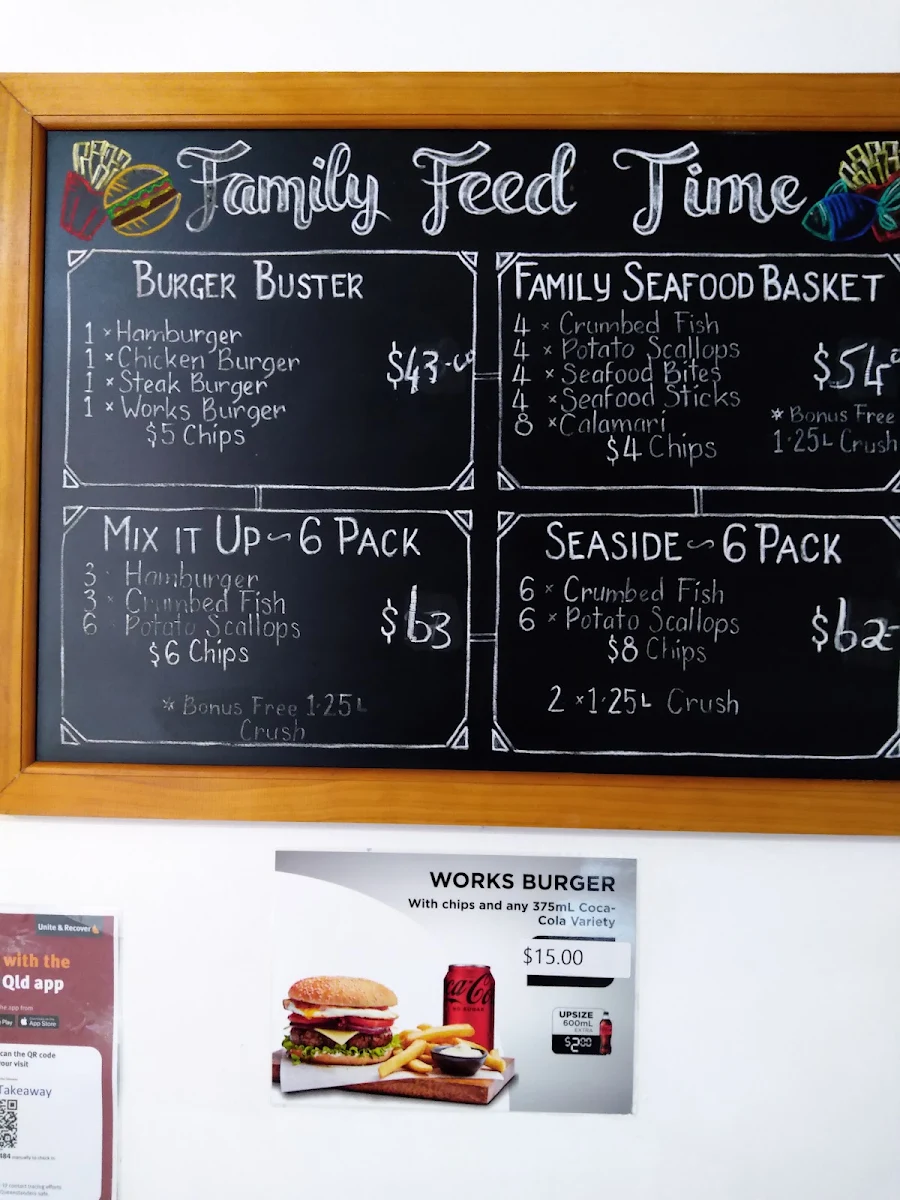 Family Feed Time
BURGER BUSTER
1 × Hamburger
1 × Chicken Burger
1 × Steak Burger
1 × Works Burger
$5 Chips
$43-00
FAMILY SEAFOOD BASKET
4 × Crumbed Fish
4 × Potato Scallops
4 × Seafood Bites
4 × Seafood Sticks
8 × Calamari
$4 Chips
$54
* Bonus Free
1·25L Crush
MIX IT UP ~ 6 PACK
3 × Hamburger
3 × Crumbed Fish
6 × Potato Scallops
$6 Chips
$63
* Bonus Free 1·25L
Crush
SEASIDE ~ 6 PACK
6 × Crumbed Fish
6 × Potato Scallops
$8 Chips
$62-
2 × 1·25L Crush
WORKS BURGER
With chips and any 375mL Coca-
Cola Variety
$15.00
UPSIZE
600mL
EXTRA
$200
NO SUGAR
Unite & Recover
with the
Qld app
the app from
Play App Store
can the QR code
your visit
Takeaway